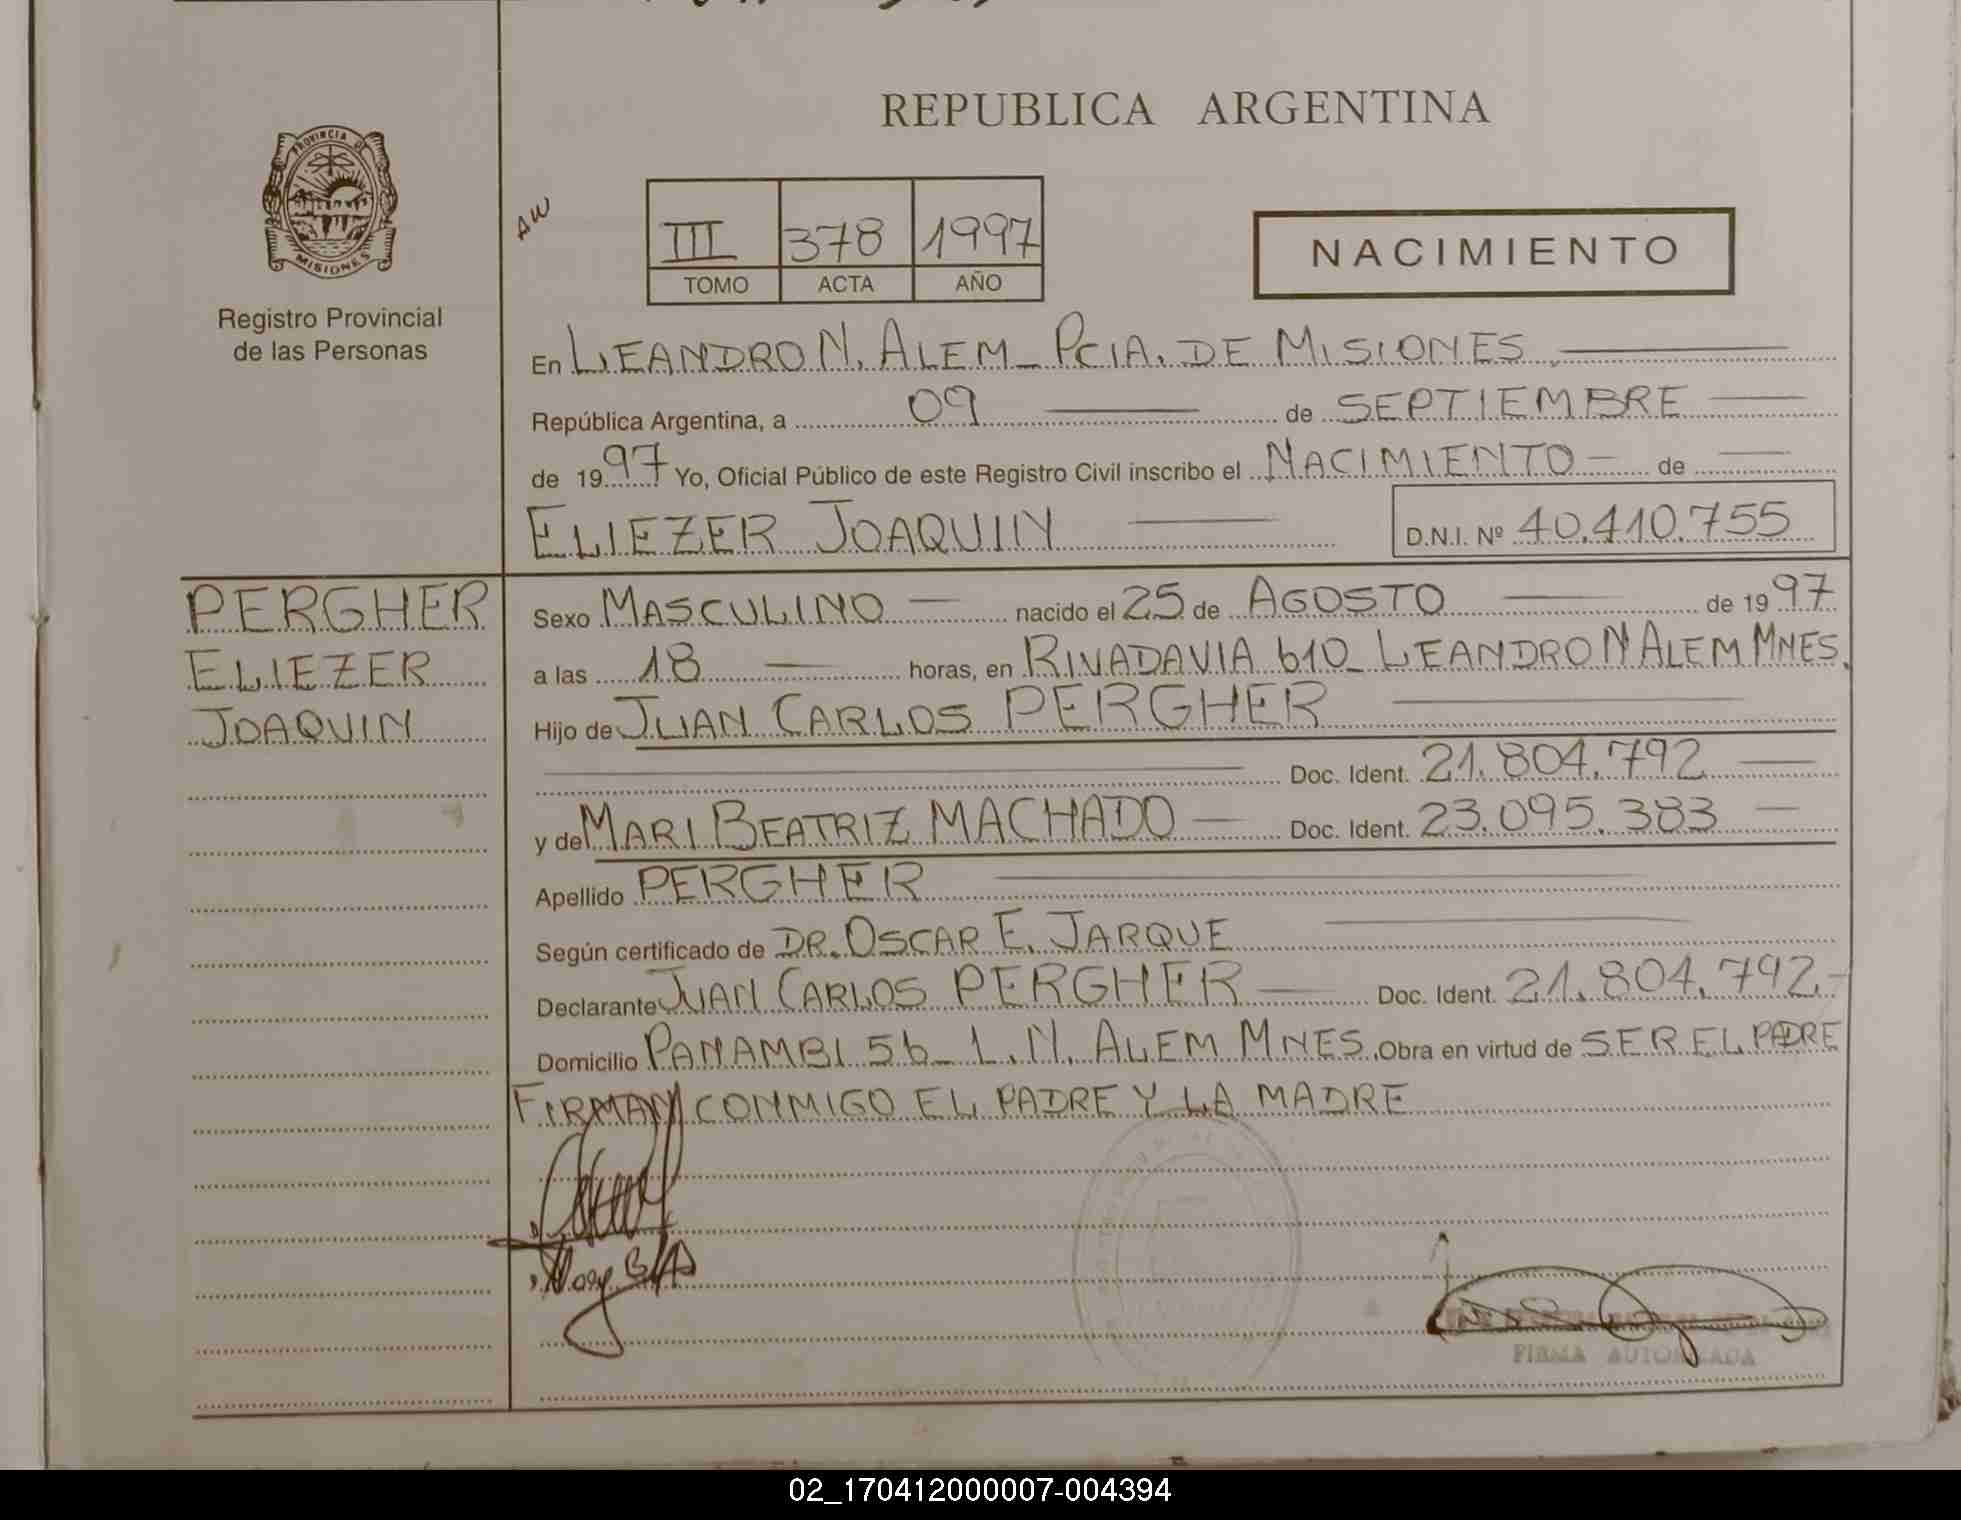 PROVINCIA DE
MISIONES
Registro Provincial
de las Personas
REPUBLICA ARGENTINA
AW
III 378 1997
TOMO ACTA AÑO
NACIMIENTO
En LEANDRO N. ALEM - PCIA. DE MISIONES
República Argentina, a 09 de SEPTIEMBRE
de 1997 Yo, Oficial Público de este Registro Civil inscribo el NACIMIENTO de
ELIEZER JOAQUIN D.N.I. Nº 40.410.755
PERGHER
ELIEZER
JOAQUIN
Sexo MASCULINO nacido el 25 de AGOSTO de 1997
a las 18 horas, en RIVADAVIA 610 - LEANDRO N ALEM MNES.
Hijo de JUAN CARLOS PERGHER
Doc. Ident. 21.804.792
y de MARI BEATRIZ MACHADO Doc. Ident. 23.095.383
Apellido PERGHER
Según certificado de DR. OSCAR E. JARQUE
Declarante JUAN CARLOS PERGHER Doc. Ident. 21.804.792
Domicilio PANAMBI 56 - L.N. ALEM MNES. Obra en virtud de SER EL PADRE
FIRMAN CONMIGO EL PADRE Y LA MADRE
FIRMA AUTORIZADA
02_170412000007-004394